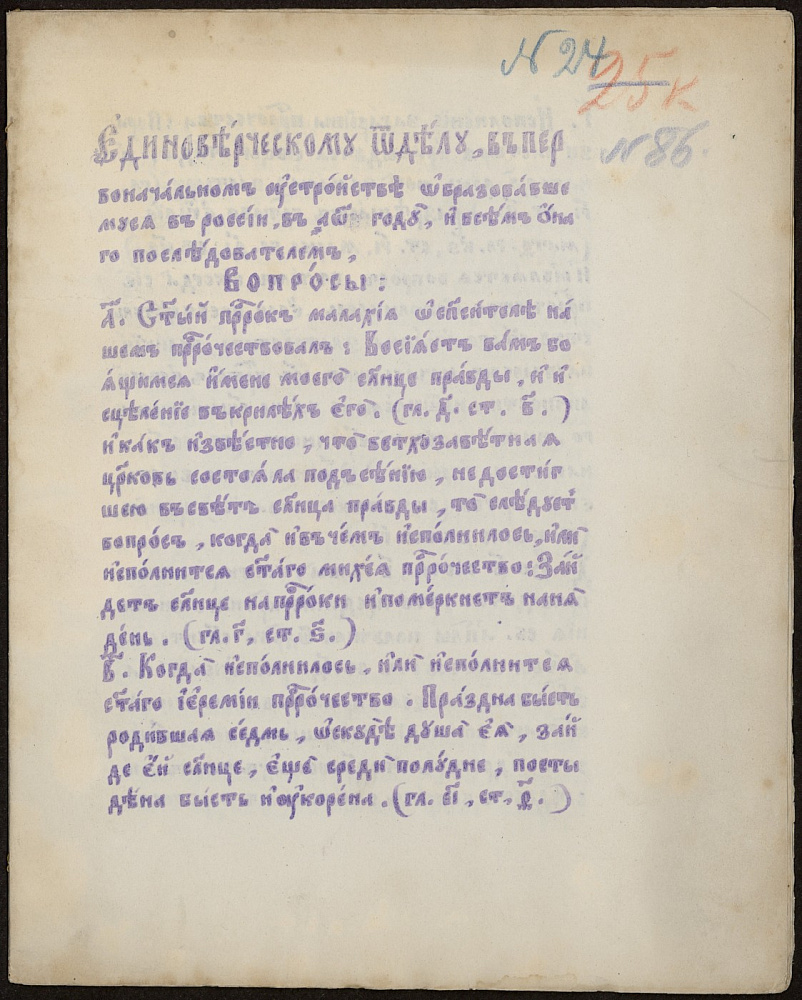 N 24
25 к
№ 86.
Є҆диновѣ́рческому ѿдѣ́лу, въ пер
воноча́льномъ ѹ҆стро́йствѣ ѡ҆бразова́вше
муся въ россі́и, въ ҂аѿ҃ году̀, и҆ всѣ́мъ ѻ҆на
го послѣ́дователемъ,
Вопро́сы:
а҃. Ст҃ы́й прⷪ҇ро́къ малахі́а ѡ҆ сп҃си́телѣ на́
шемъ прⷪ҇ро́чествовалъ: Возсїѧ́етъ ва́мъ бо
ѧ́щимсѧ и҆́мене моегѡ̀ сл҃нце пра́вды, и҆ и҆
сцѣле́нїе въ крилѣ́хъ є҆гѡ̀. (гл. д҃. ст. в҃.)
и҆ ка́къ и҆звѣ́стно, что̀ ветхозавѣ́тнаѧ
цр҃ковь состоѧ́ла подъ сѣ́нїю, не дости́г
шею въ свѣ́тъ сл҃нца пра́вды, то̀ слѣ́дуетъ
вопро́съ, когда̀ и҆ въ че́мъ и҆спо́лнилось, и҆лѝ
и҆спо́лнитсѧ ст҃а́го михе́а прⷪ҇ро́чество: За́й
детъ сл҃нце на прⷪ҇ро́ки и҆ поме́ркнетъ на нѧ̀
де́нь. (гл. г҃, ст. ѕ҃.)
в҃. Когда̀ и҆спо́лнилось, и҆лѝ и҆спо́лнитсѧ
ст҃а́го і҆ереміи прⷪ҇ро́чество. Пра́здна бы́сть
роди́вшаѧ се́дмь, ѡ҆скудѣ̀ душа̀ є҆ѧ̀, за́й
де є҆́й сл҃нце, є҆щѐ средѝ полу́дне, посты
дѣ́на бы́сть и҆ ѹ҆коре́на. (гл. є҃і, ст. ѳ҃.)